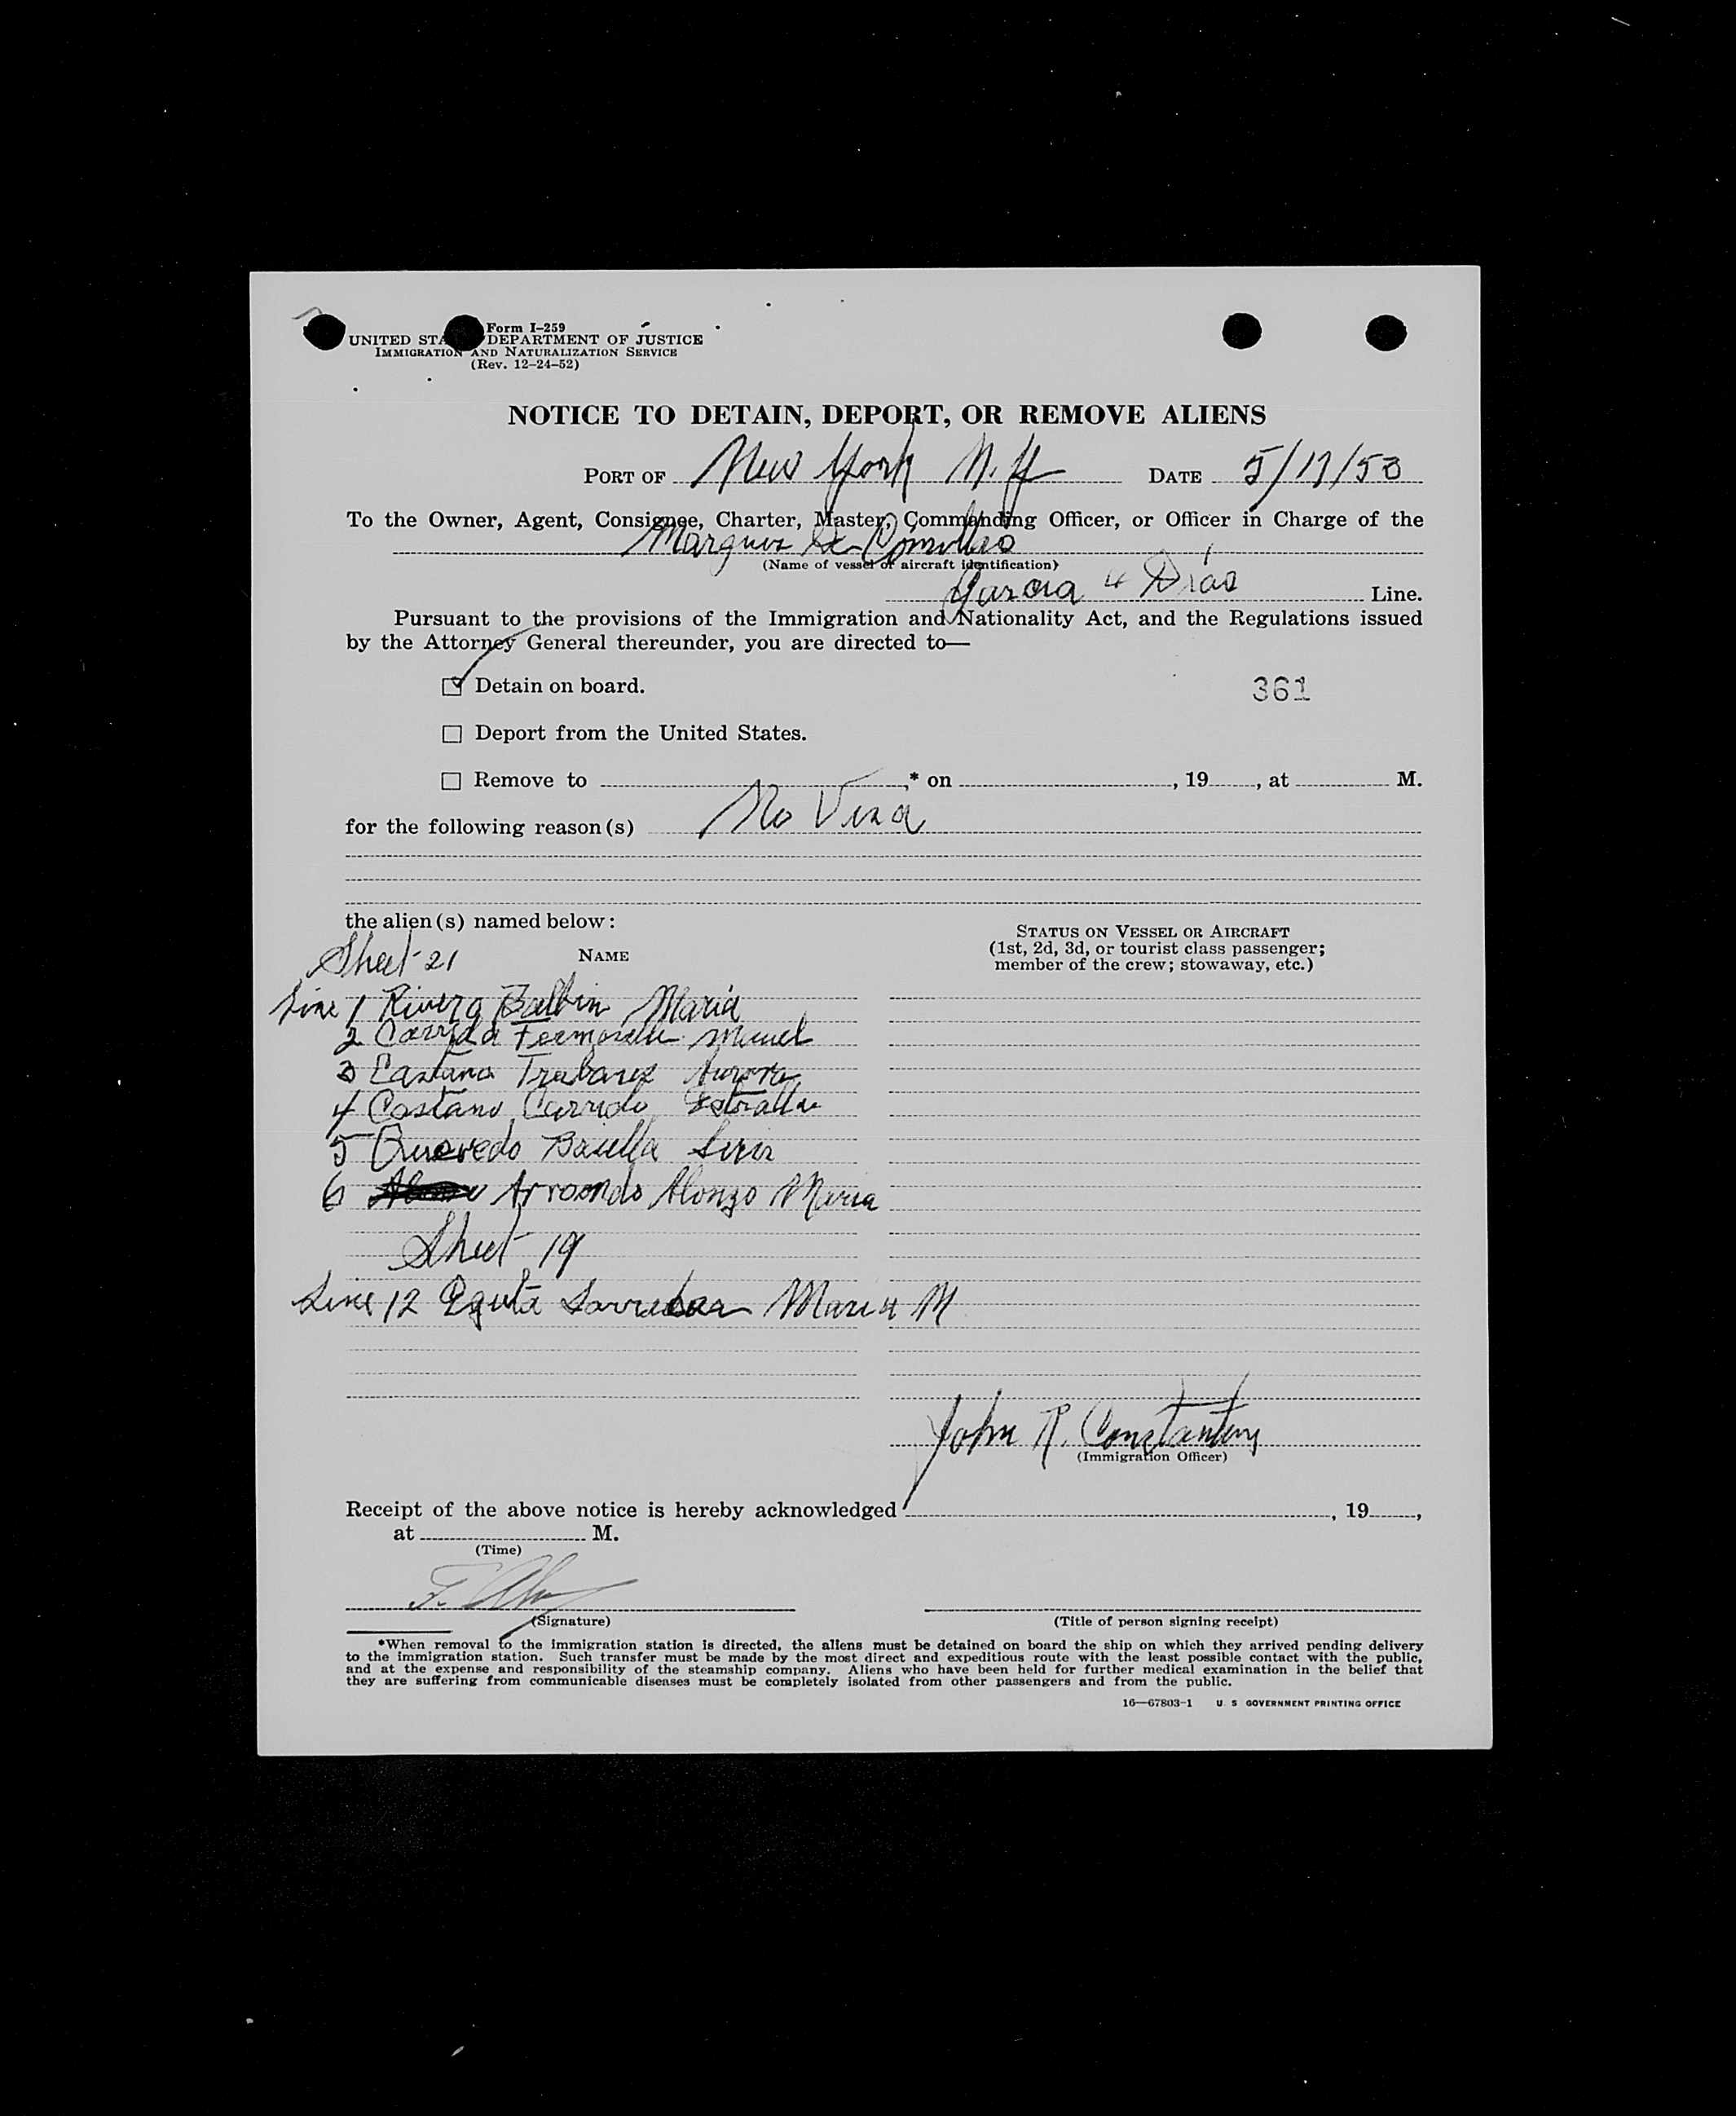 Form I-259
UNITED STA DEPARTMENT OF JUSTICE
IMMIGRATION AND NATURALIZATION SERVICE
(Rev. 12-24-52)
NOTICE TO DETAIN, DEPORT, OR REMOVE ALIENS
PORT OF New York N.Y. DATE 5/17/53
To the Owner, Agent, Consignee, Charter, Master, Commanding Officer, or Officer in Charge of the
Marques De Comillas
(Name of vessel or aircraft identification)
Garcia & Dias Line.
Pursuant to the provisions of the Immigration and Nationality Act, and the Regulations issued
by the Attorney General thereunder, you are directed to—
☑ Detain on board.
361
☐ Deport from the United States.
☐ Remove to * on , 19 , at M.
for the following reason(s) No Visa
the alien(s) named below:
STATUS ON VESSEL OR AIRCRAFT
(1st, 2d, 3d, or tourist class passenger;
member of the crew; stowaway, etc.)
Sheet 21
NAME
Line 1 Rivera Balbin Maria
2 Manuel
3 Castana Aurora
4 Costano Carrido Estrella
5 Quevedo
6 Arroondo Alonzo Maria
Sheet 19
Line 12 Maria M
John R.
(Immigration Officer)
Receipt of the above notice is hereby acknowledged , 19 ,
at M.
(Time)
(Signature)
(Title of person signing receipt)
*When removal to the immigration station is directed, the aliens must be detained on board the ship on which they arrived pending delivery
to the immigration station. Such transfer must be made by the most direct and expeditious route with the least possible contact with the public,
and at the expense and responsibility of the steamship company. Aliens who have been held for further medical examination in the belief that
they are suffering from communicable diseases must be completely isolated from other passengers and from the public.
16—67803-1 U. S. GOVERNMENT PRINTING OFFICE